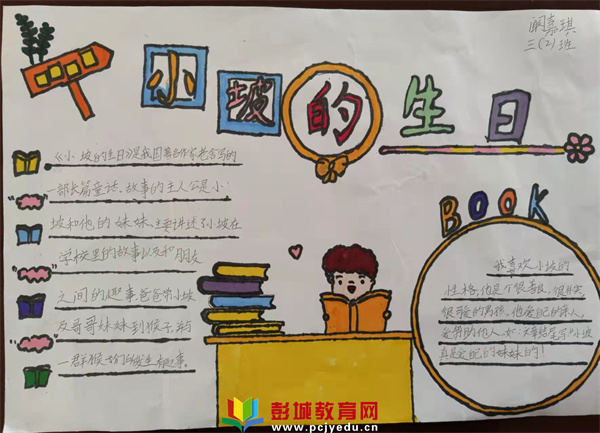 阚嘉琪
三(2)班
小坡的生日
《小坡的生日》是我国著名作家老舍写的
一部长篇童话、故事的主人公是小
坡和他的妹妹、主要讲述了小坡在
学校里的故事以及和朋友
之间的趣事,爸爸带小坡
及哥哥妹妹到猴子
一群猴子们的发生趣事。
BOOK
我喜欢小坡的
性格,他是个很善良,很
很可爱的男孩,他爱自己的家人,
爱帮助他人,
真是爱他的妹妹的!
彭城教育网
www.pcjyedu.cn